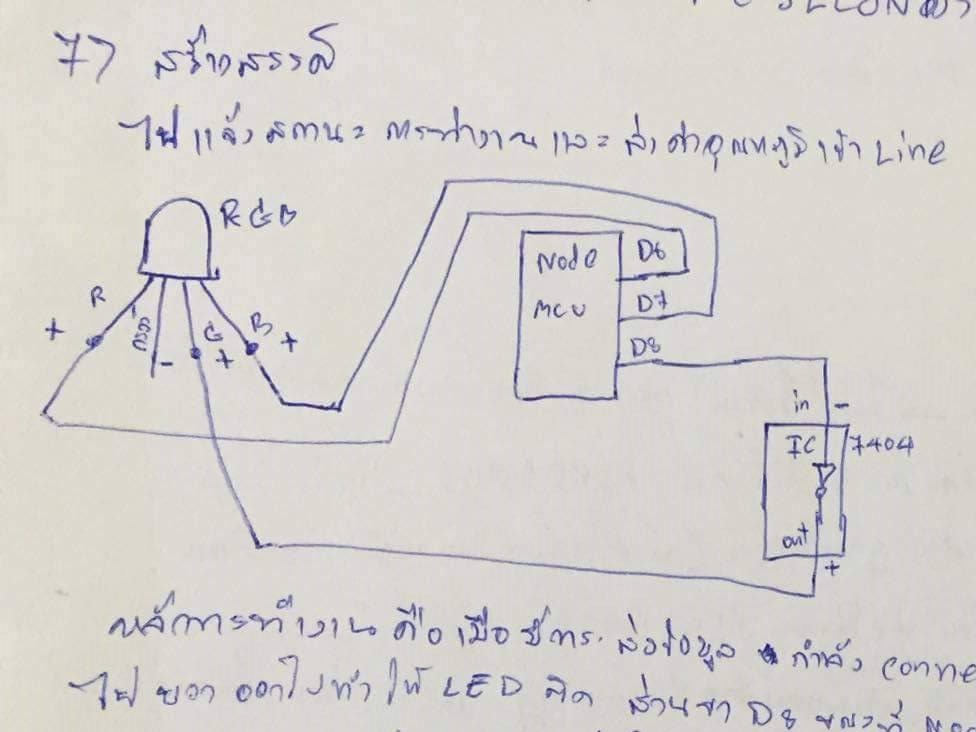 77 สร้างสรรค์
ไฟแจ้งสถานะ การทำงานและส่งค่าอุณหภูมิเข้า Line
RGB
Node
MCU
D6
D7
D8
R
+
-
G
+
B
+
in -
IC 7404
out
+
หลักการทำงาน คือ เมื่อมีการส่งข้อมูล กำลัง conne
ไฟ ออกไปทำให้ LED ติด ส่วนขา D8 ขณะที่